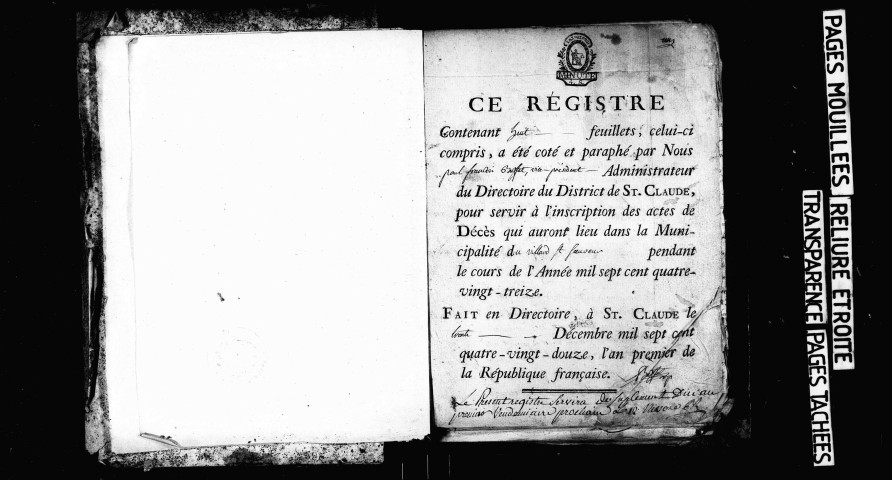 MINUTE
CE RÉGISTRE
Contenant huit feuillets, celui-ci
compris, a été coté et paraphé par Nous
paul françois vice-président Administrateur
du Directoire du District de ST. CLAUDE,
pour servir à l'inscription des actes de
Décès qui auront lieu dans la Muni-
cipalité du villard st sauveur pendant
le cours de l'Année mil sept cent quatre-
vingt-treize.
FAIT en Directoire, à ST. CLAUDE le
trente Décembre mil sept cent
quatre-vingt-douze, l'an premier de
la République française.
Le Present registre Servira de Suplement
premier Vendemiaire prochain
PAGES MOUILLEES RELIURE ETROITE
TRANSPARENCE PAGES TACHEES